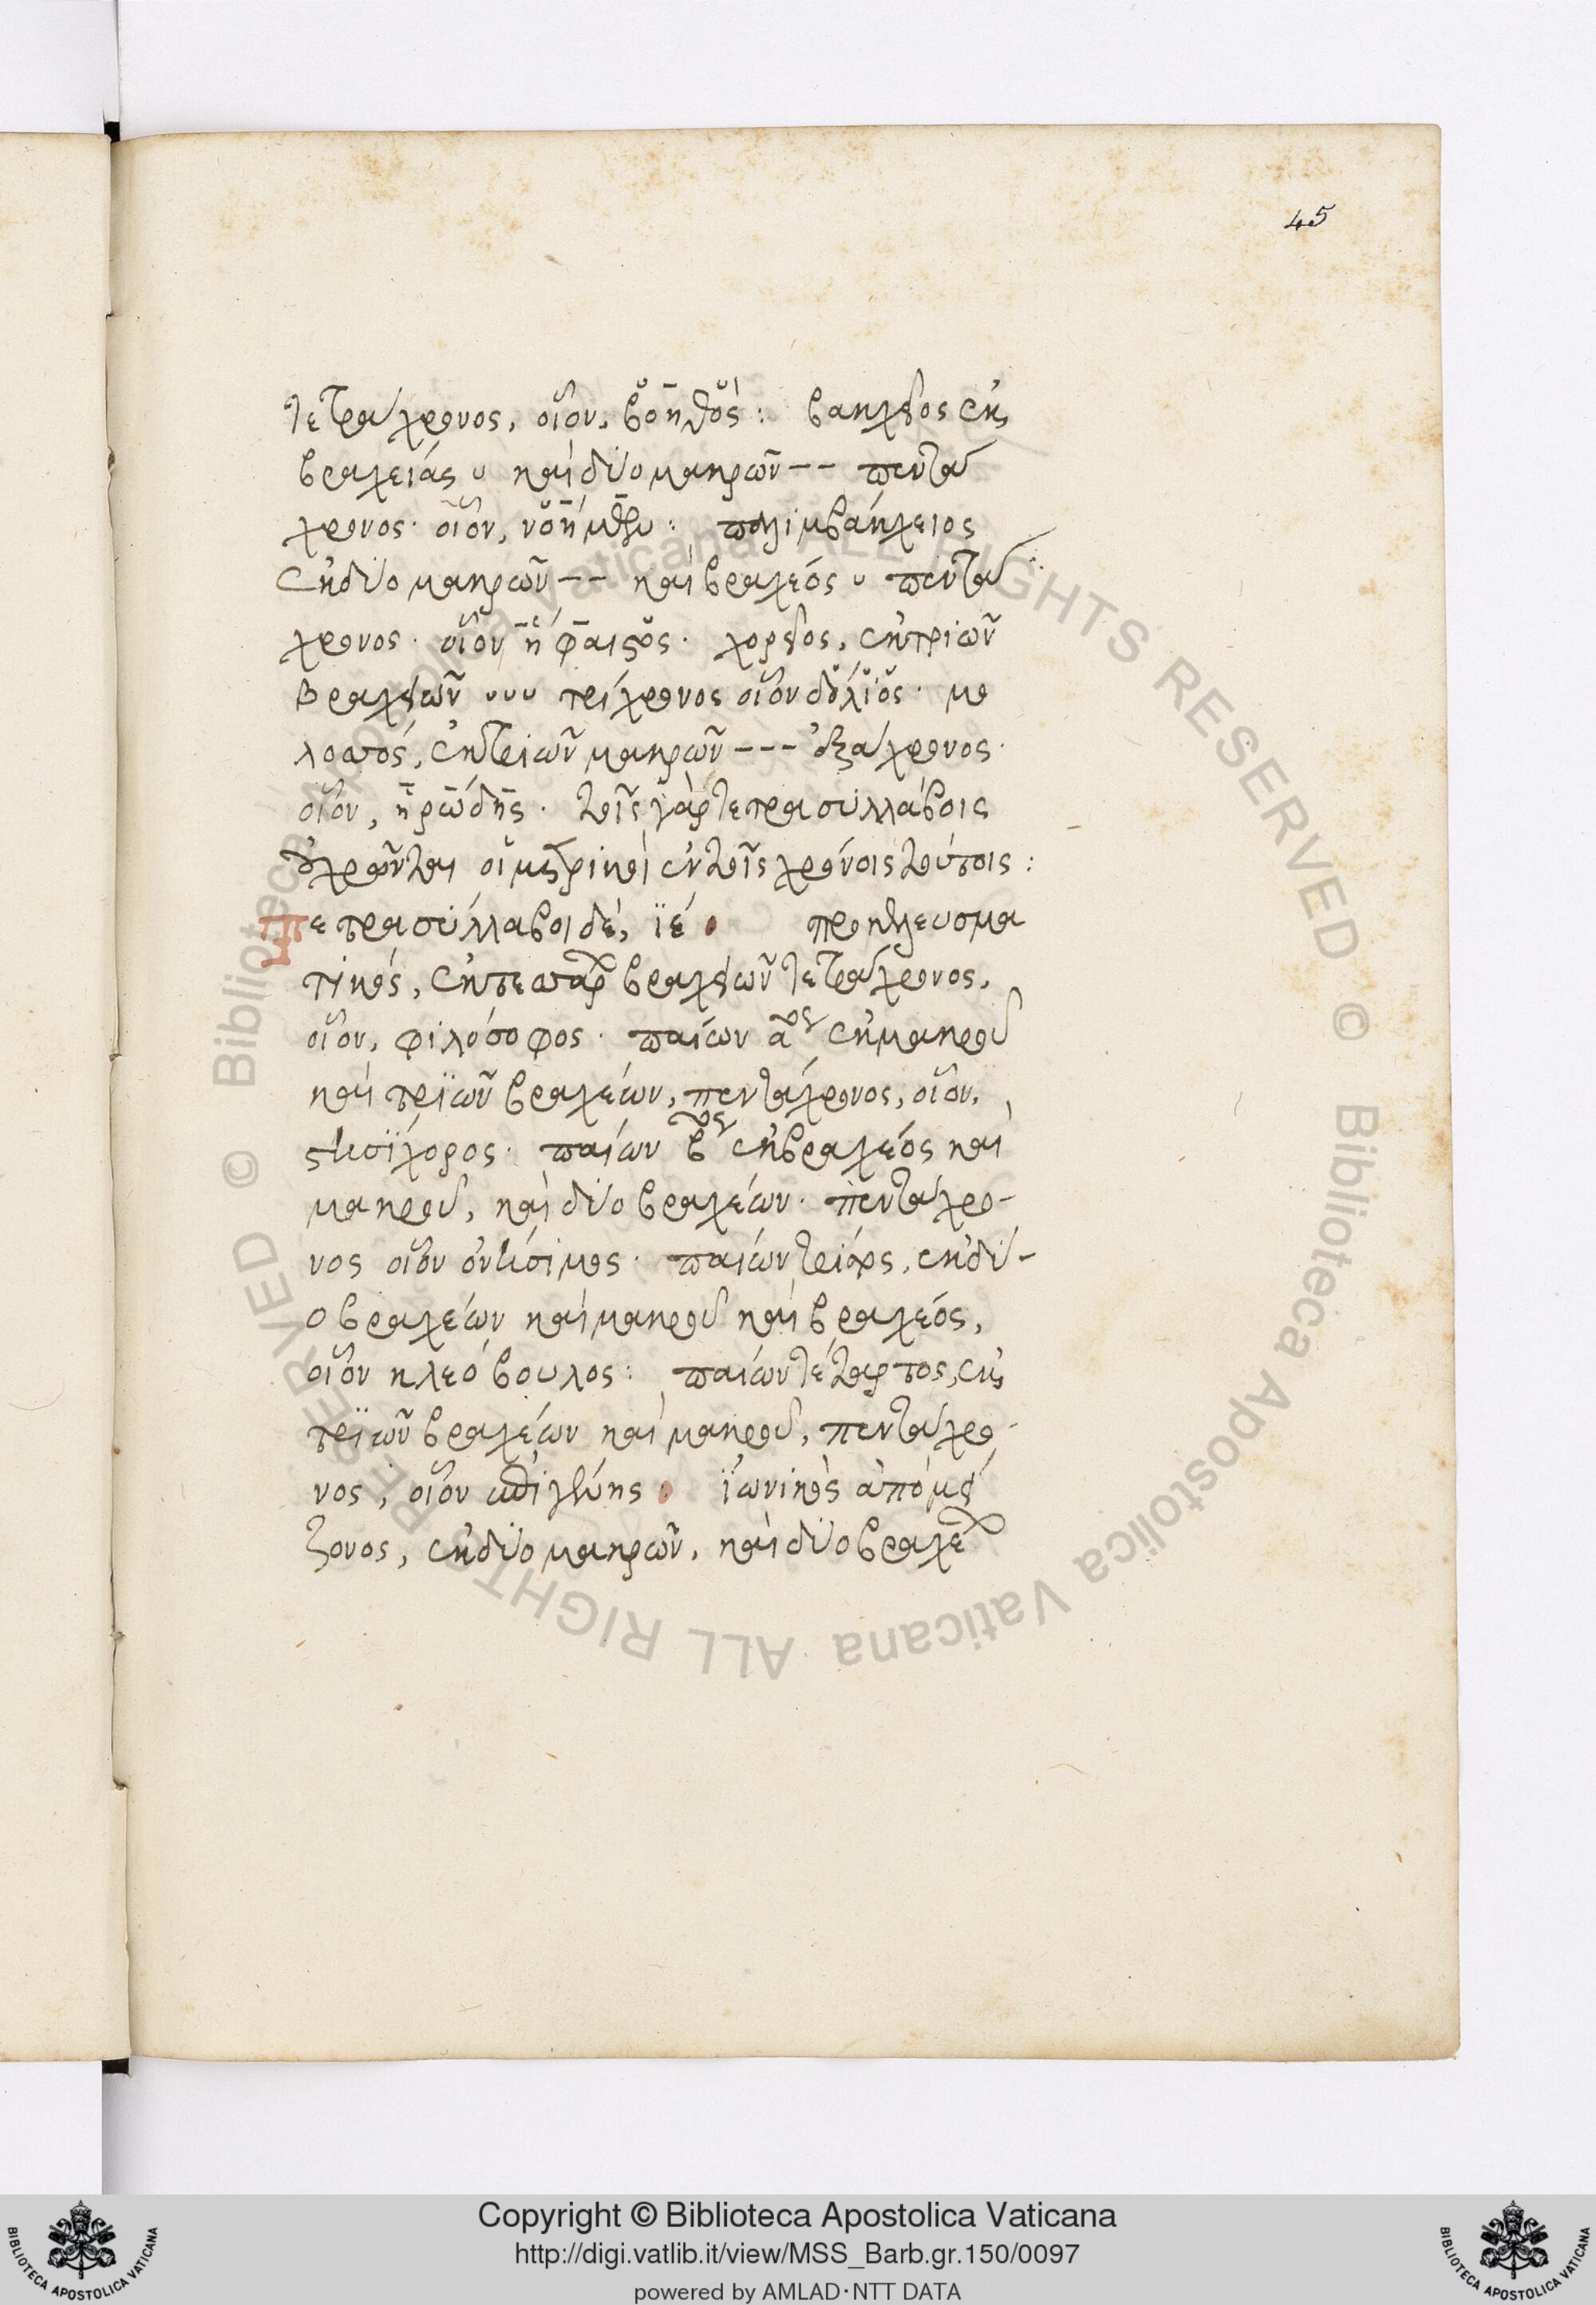 45
τετράχρονος, οἷον, βοηθός: βακχεῖος ἐκ
βραχείας υ καὶ δύο μακρῶν -- πεντά
χρονος· οἷον, νοήμων: παλιμβάκχειος
ἐκ δύο μακρῶν -- καὶ βραχέος υ πεντά
χρονος· οἷον ἥφαιστος· χορεῖος, ἐκ τριῶν
βραχειῶν υυυ τρίχρονος οἷον δόλιος· μο
λοσσός, ἐκ τριῶν μακρῶν --- ἑξάχρονος·
οἷον, ἡρώδης· τοῖς γὰρ τετρασυλλάβοις
οἱ μετρικοὶ ἐν τοῖς χρόνοις τούτοις:
Τετρασύλλαβοι δὲ, ϊέ. προκελευσμα
τικός, ἐκ τεσσάρων βραχειῶν τετράχρονος,
οἷον, φιλόσοφος· παίων αος ἐκ μακροῦ
καὶ τριῶν βραχέων, πεντάχρονος, οἷον,
στησίχορος· παίων βος ἐκ βραχέος καὶ
μακροῦ, καὶ δύο βραχέων· πεντάχρο-
νος οἷον ὀνήσιμος· παίων τρίτος, ἐκ δύ-
ο βραχέων καὶ μακροῦ καὶ βραχέος,
οἷον κλεόβουλος: παίων τέταρτος, ἐκ
τριῶν βραχέων καὶ μακροῦ, πεντάχρο
νος, οἷον ἐπιγένης. ἰωνικὸς ἀπὸ μεί
ζονος, ἐκ δύο μακρῶν, καὶ δύο βραχέων
Copyright © Biblioteca Apostolica Vaticana
http://digi.vatlib.it/view/MSS_Barb.gr.150/0097
powered by AMLAD·NTT DATA
BIBLIOTECA APOSTOLICA VATICANA
BIBLIOTECA APOSTOLICA VATICANA
© Biblioteca Apostolica Vaticana ALL RIGHTS RESERVED © Biblioteca Apostolica Vaticana ALL RIGHTS RESERVED